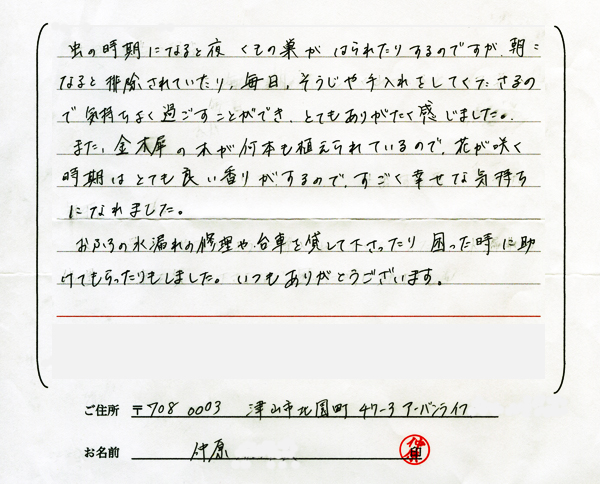 虫の時期になると夜 くもの巣が はられたりするのですが、朝に
なると 排除されていたり、毎日、そうじや手入れをしてくださるの
で気持ちよく過ごすことができ、とてもありがたく感じました。
また、金木犀の木が何本も植えられているので、花が咲く
時期は とても良い香りがするので、すごく幸せな気持ち
になれました。
おふろの水漏れの修理や、台車を貸して下さったり 困った時に助
けてもらったりもしました。いつもありがとうございます。
ご住所 〒708 0003 津山市北園町 47-3 アーバンライフ
お名前 仲原